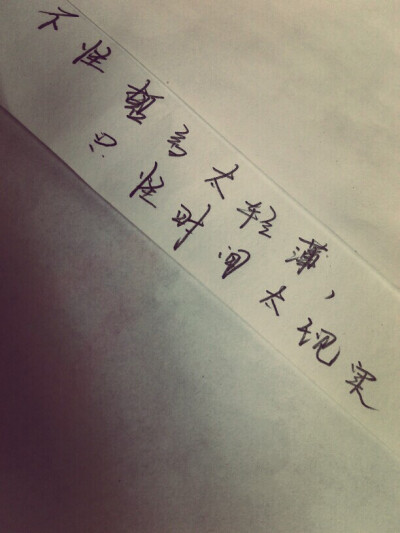 不怪誓言太轻薄，
只怪时间太现实